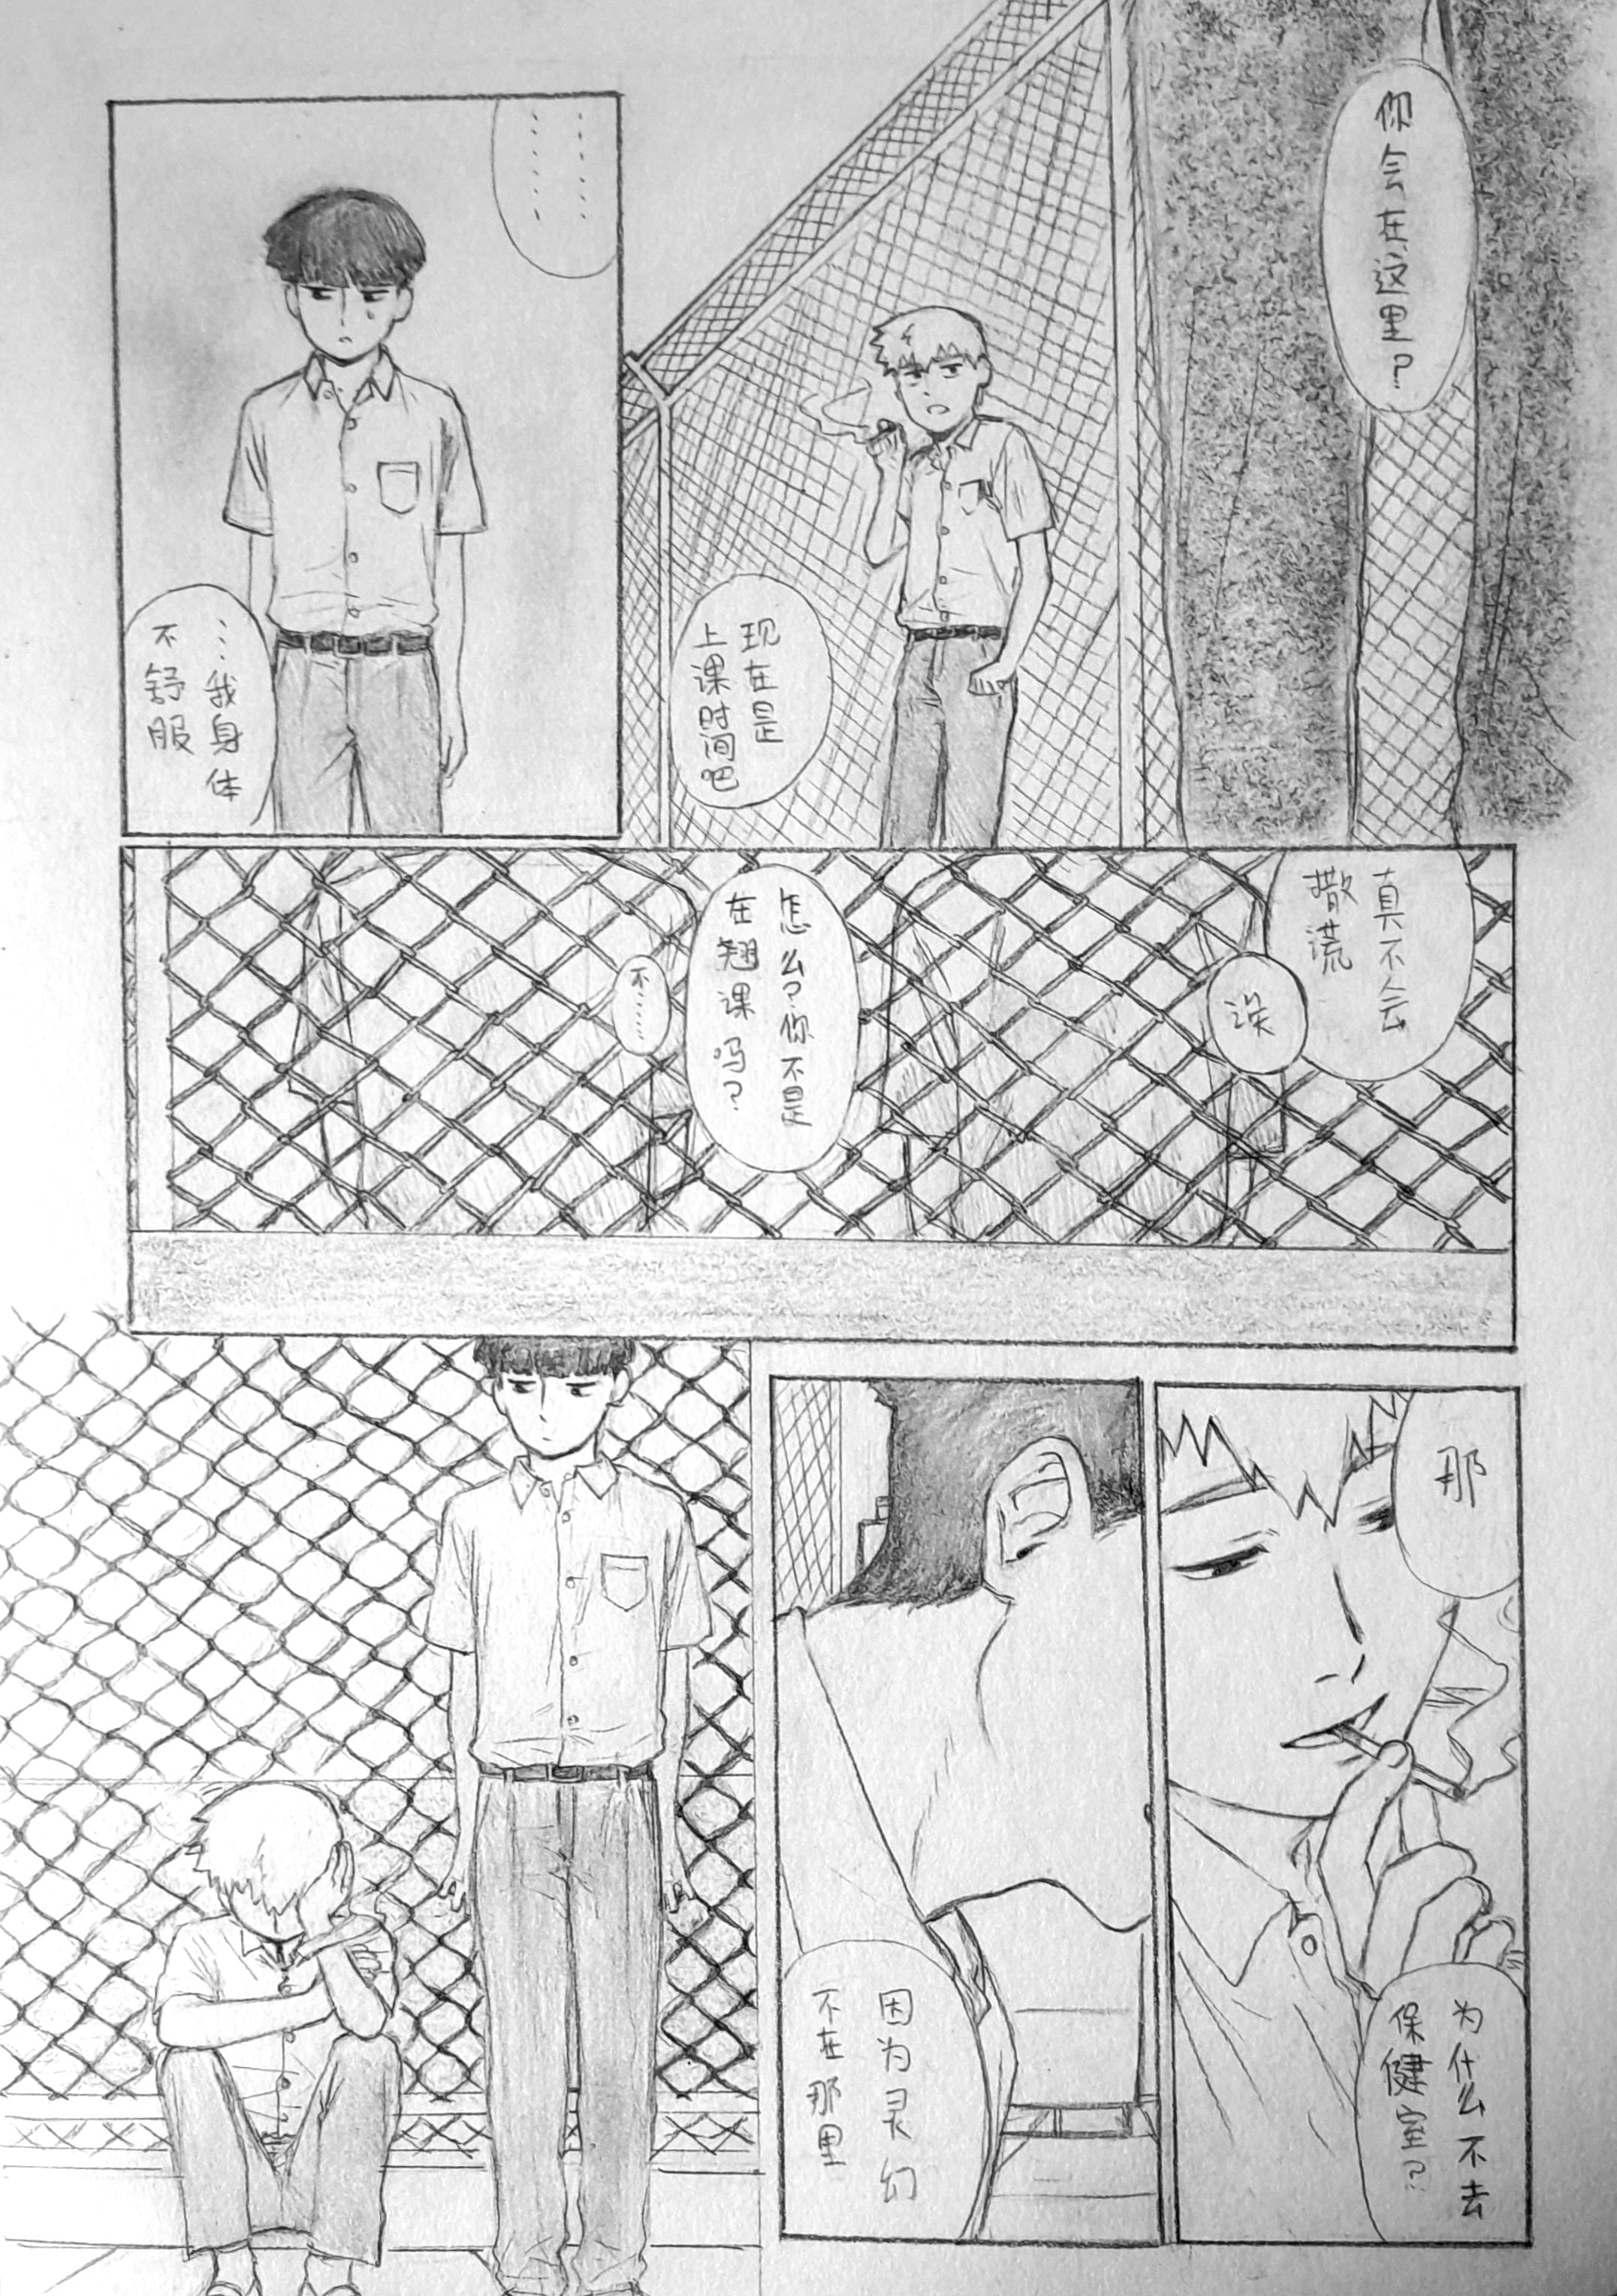 你会在这里？
现在是
上课时间吧
……
……
…我身体
不舒服
真不会
撒谎
诶
怎么？你不是
在翘课吗？
不……
那
为什么不去
保健室？
因为灵幻
不在那里